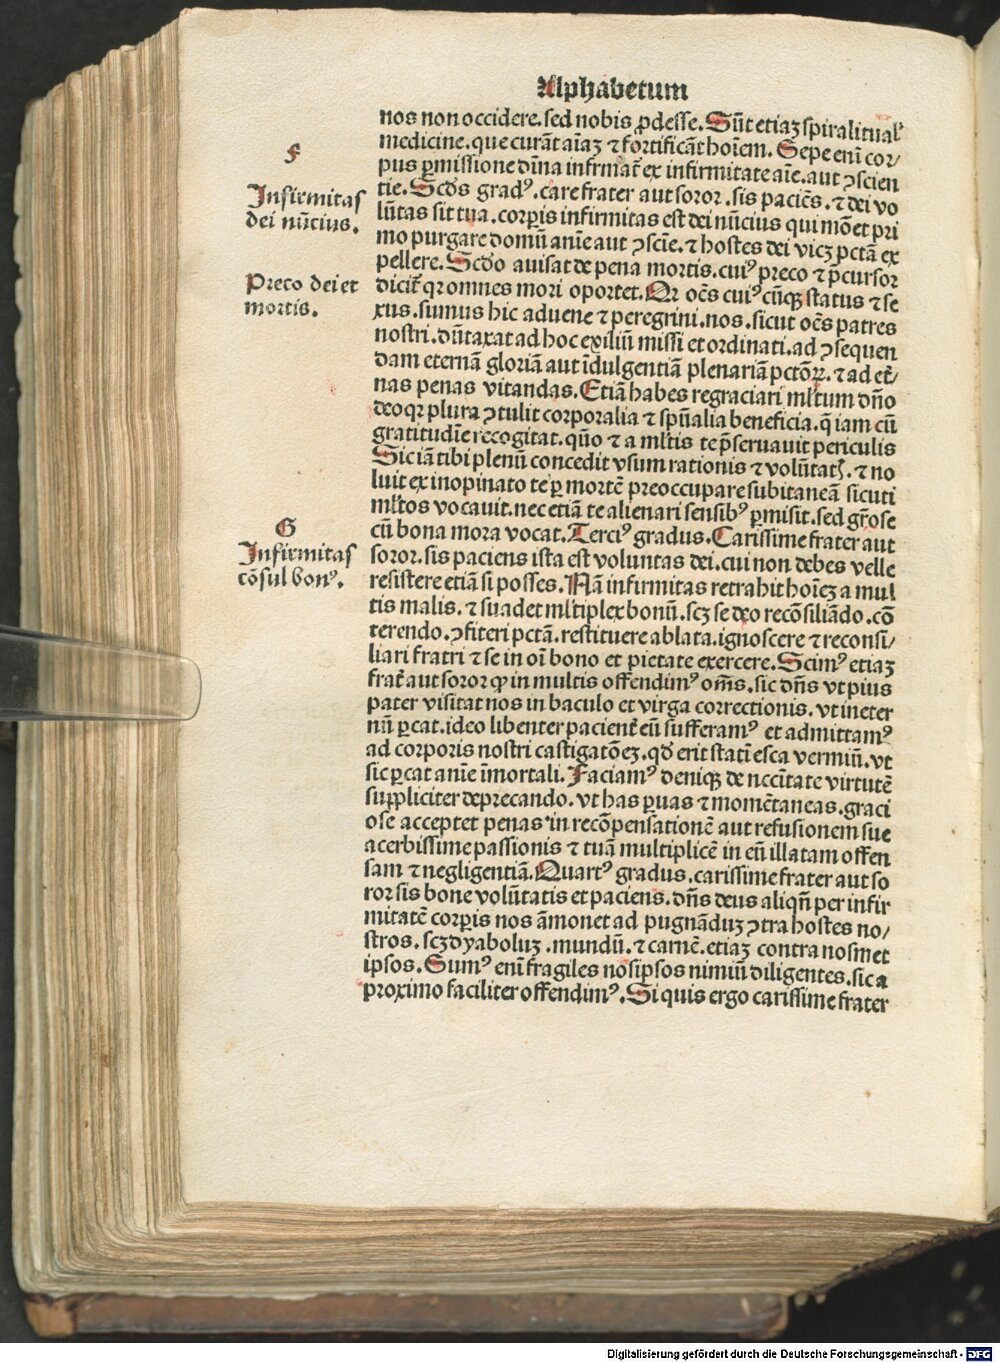 Alphabetum
nos non occidere. sed nobis ꝓdesse. Sūt etiaꝫ spiralitual᷒
medicine. que curāt aīaꝫ ⁊ fortificāt hoīem. Sepe enī cor/
F
pus ꝑmissione dīna infirmat᷒ ex infirmitate aīe. aut ꝯscien
Infirmitas
dei nūcius.
tie. Scd̄s gradꝰ. care frater aut soror. sis paciēs. ⁊ dei vo
lūtas sit tua. corꝑis infirmitas est dei nūcius qui mōet pri
mo purgare domū anīe aut ꝯscīe. ⁊ hostes dei vicꝫ pctā ex
pellere. Scd̄o auisat de pena mortis. cuiꝰ preco ⁊ p̄cursor
Preco dei et
mortis.
dicit᷒ qꝛ omnes mori oportet. Qꝛ oēs cuiꝰcūqꝫ status ⁊ se
xus. sumus hic aduene ⁊ peregrini. nos. sicut oēs patres
nostri. dūtaxat ad hoc exiliū missi et ordinati. ad ꝯsequen
dam eternā gloriā aut īdulgentiā plenariā pctōꝝ. ⁊ ad et᷒/
nas penas vitandas. Etiā habes regraciari ml̄tum dn̄o
deo qꝛ plura ꝯtulit corporalia ⁊ spūalia beneficia. q̄ iam cū
gratitudīe recogitat. quō ⁊ a ml̄tis te p̄seruauit periculis
Sic iā tibi plenū concedit vsum rationis ⁊ volūtat᷒. ⁊ no
luit ex inopinato te ꝑ mortē preoccupare subitaneā sicuti
ml̄tos vocauit. nec etiā te alienari sensibꝰ ꝑmisit. sed gr̄ose
G
cū bona mora vocat. Terciꝰ gradus. Carissime frater aut
Infirmitas
cōsul bonꝰ.
soror. sis paciens ista est voluntas dei. cui non debes velle
resistere etiā si posses. Nā infirmitas retrahit hoīeꝫ a mul
tis malis. ⁊ suadet ml̄tiplex bonū. scꝫ se deo recōsiliādo. cō
terendo. ꝯfiteri pctā. restituere ablata. ignoscere ⁊ reconsi/
liari fratri ⁊ se in oī bono et pietate exercere. Scimꝰ etiaꝫ
frat᷒ aut soror ꝙ in multis offendimꝰ om̄s. sic dn̄s vt pius
pater visitat nos in baculo et virga correctionis. vt in eter
nū ꝑcat. ideo libenter pacient᷒ eū sufferamꝰ et admittamꝰ
ad corporis nostri castigatōeꝫ. qd̄ erit statī esca vermiū. vt
sic ꝑcat anīe īmortali. Faciamꝰ deniqꝫ de nccītate virtutē
suppliciter deprecando. vt has ꝑuas ⁊ momētaneas. graci
ose acceptet penas in recōpensationē aut refusionem sue
acerbissime passionis ⁊ tuā multiplicē in eū illatam offen
sam ⁊ negligentiā. Quartꝰ gradus. carissime frater aut so
ror sis bone volūtatis et paciens. dn̄s deus aliqn̄ per infir
mitatē corꝑis nos āmonet ad pugnāduꝫ ꝯtra hostes no/
stros. scꝫ dyaboluꝫ. mundū. ⁊ carnē. etiaꝫ contra nosmet
ipsos. Sumꝰ enī fragiles nosipsos nimiū diligentes. sic a
proximo faciliter offendimꝰ. Si quis ergo carissime frater
Digitalisierung gefördert durch die Deutsche Forschungsgemeinschaft - DFG